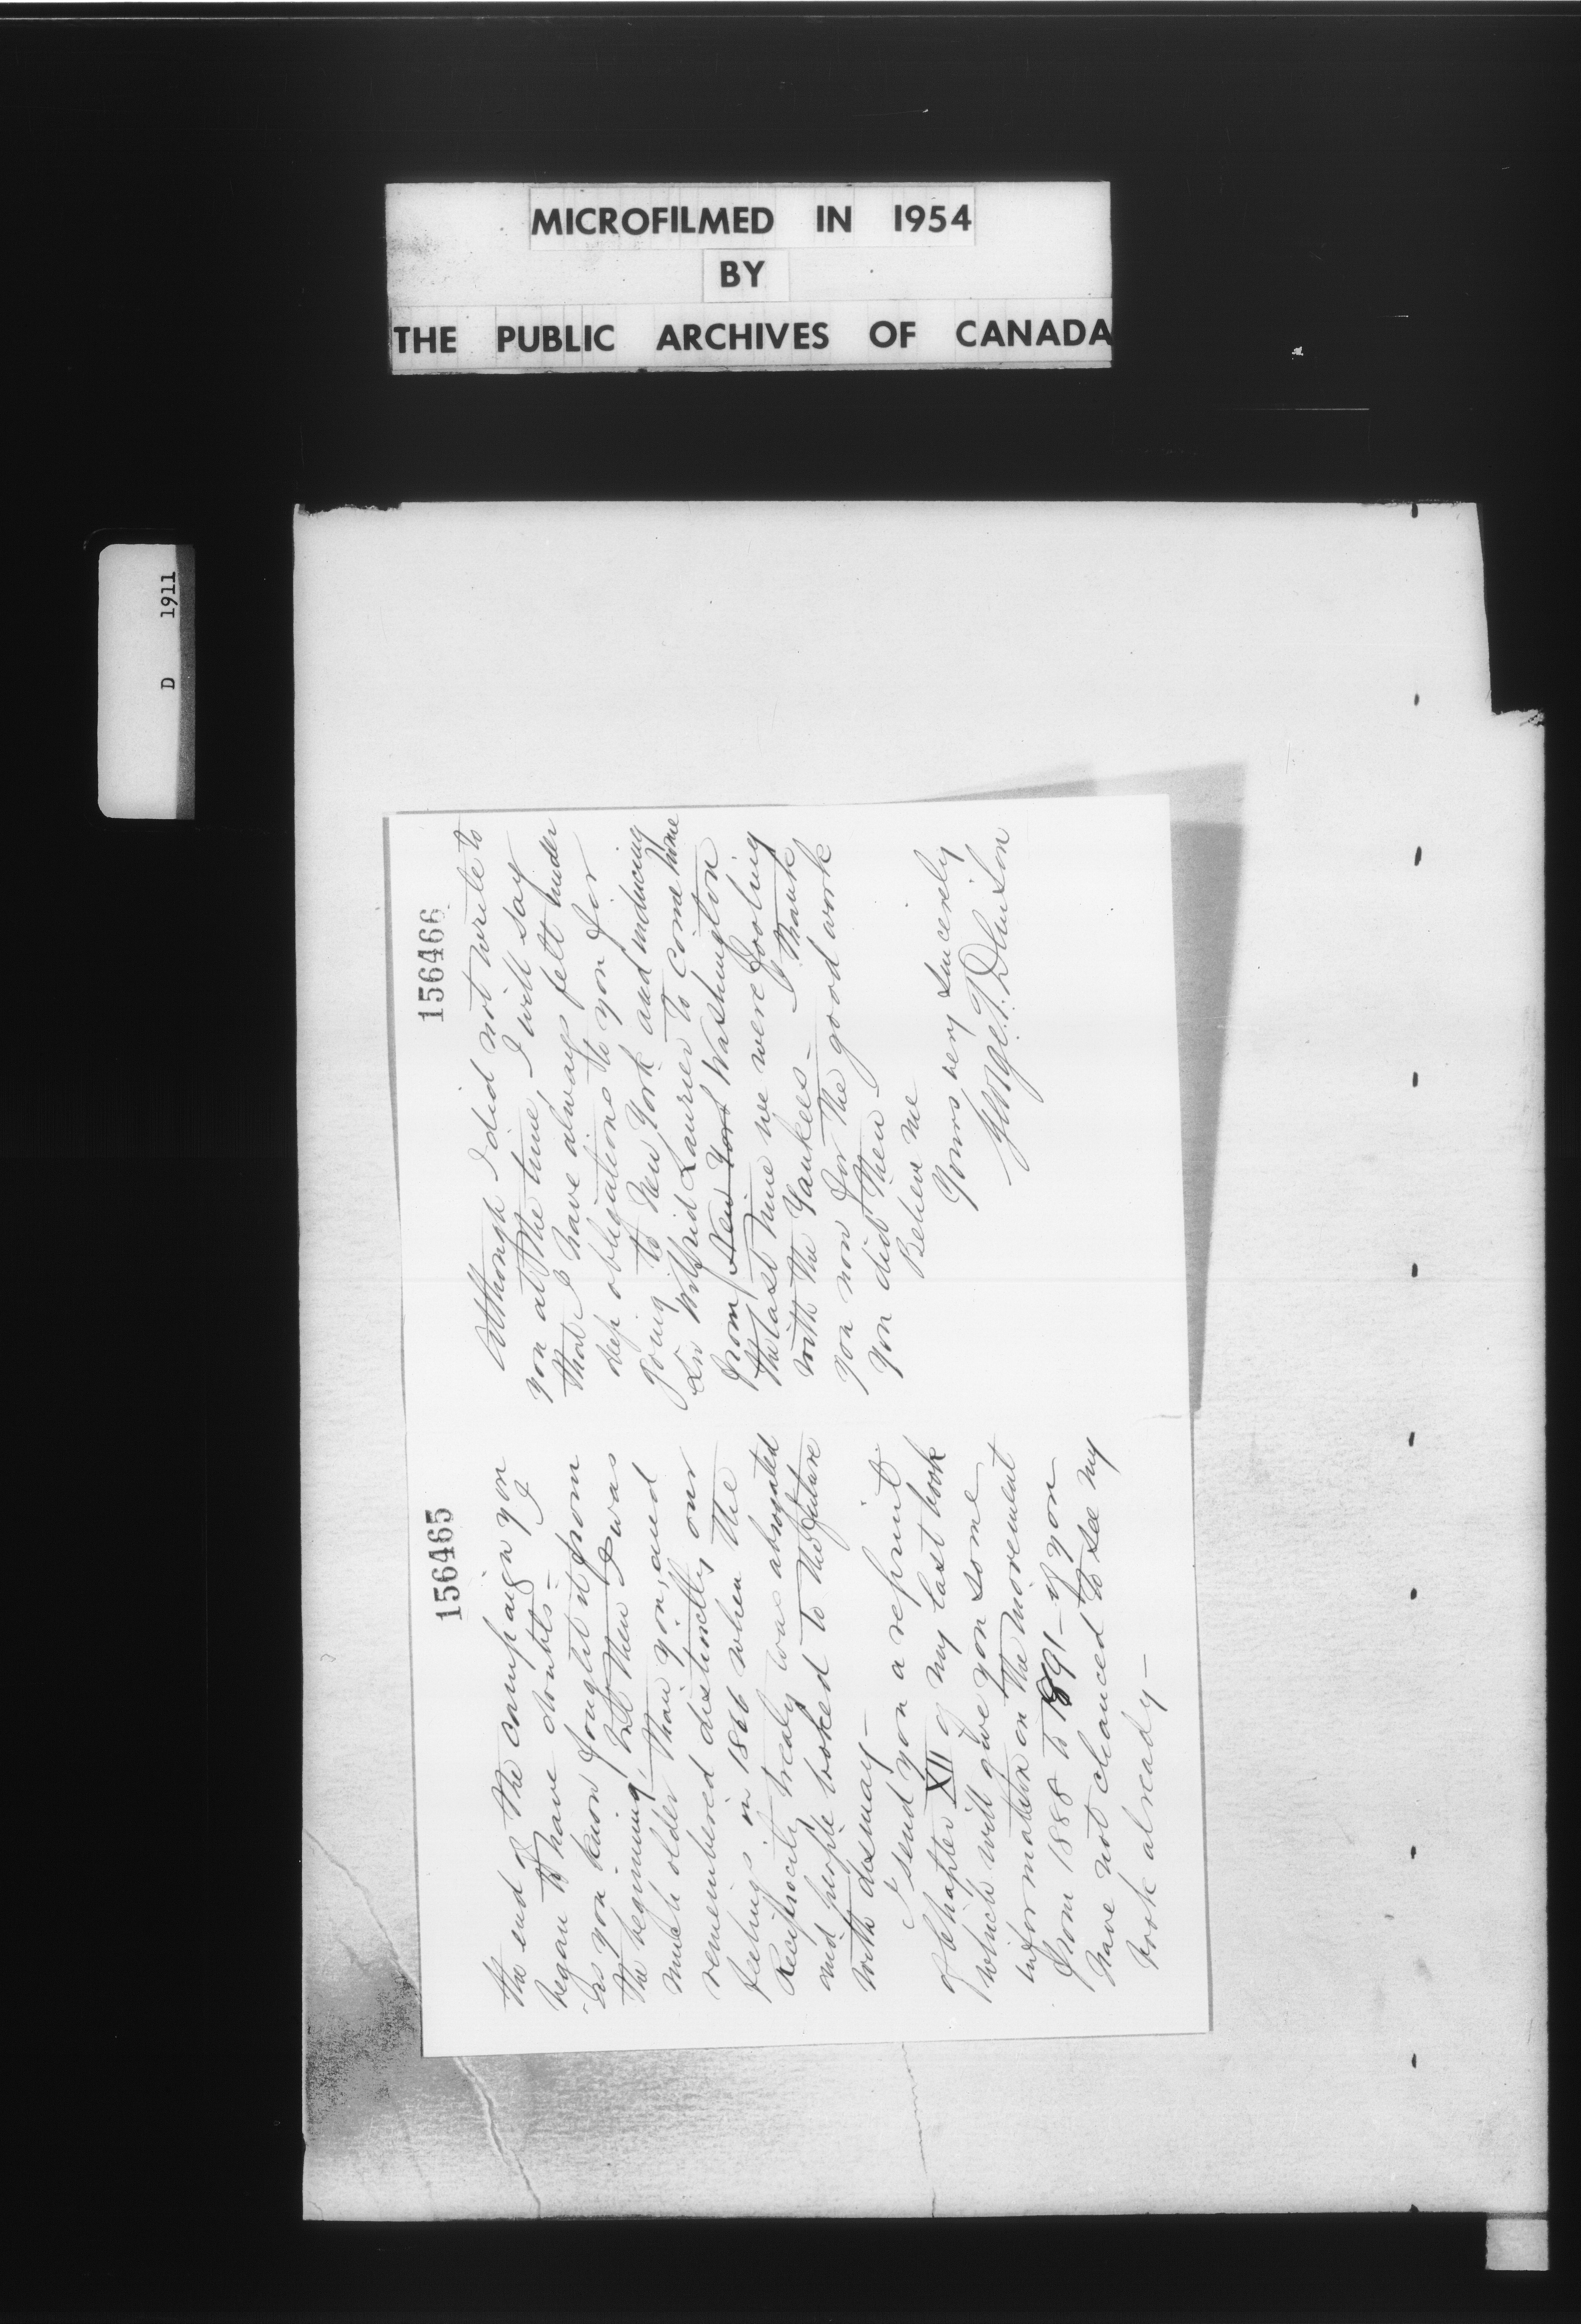 MICROFILMED IN 1954
BY
THE PUBLIC ARCHIVES OF CANADA
D 1911
156465
the end of the campaign you
began to have doubts - I
as you know fought it from
the beginning, but then I was
much older than you, and
remembered distinctly our
feelings in 1866 when the
Reciprocity treaty was abrogated
and people looked to the future
with dismay -
I send you a reprint
of Chapter XII of my last book
which will give you some
information on the movement
from 1888 to 1891 - if you
have not chanced to see my
book already -
156466
Although I did not write to
you at the time, I will say
that I have always felt under
deep obligations to you for
going to New York and inducing
Sir Wilfrid Laurier to come home
from New York Washington
the last time we were fooling
with the Yankees - I thank
you now for the good work
you did then -
Believe me
Yours very sincerely
George T. Denison